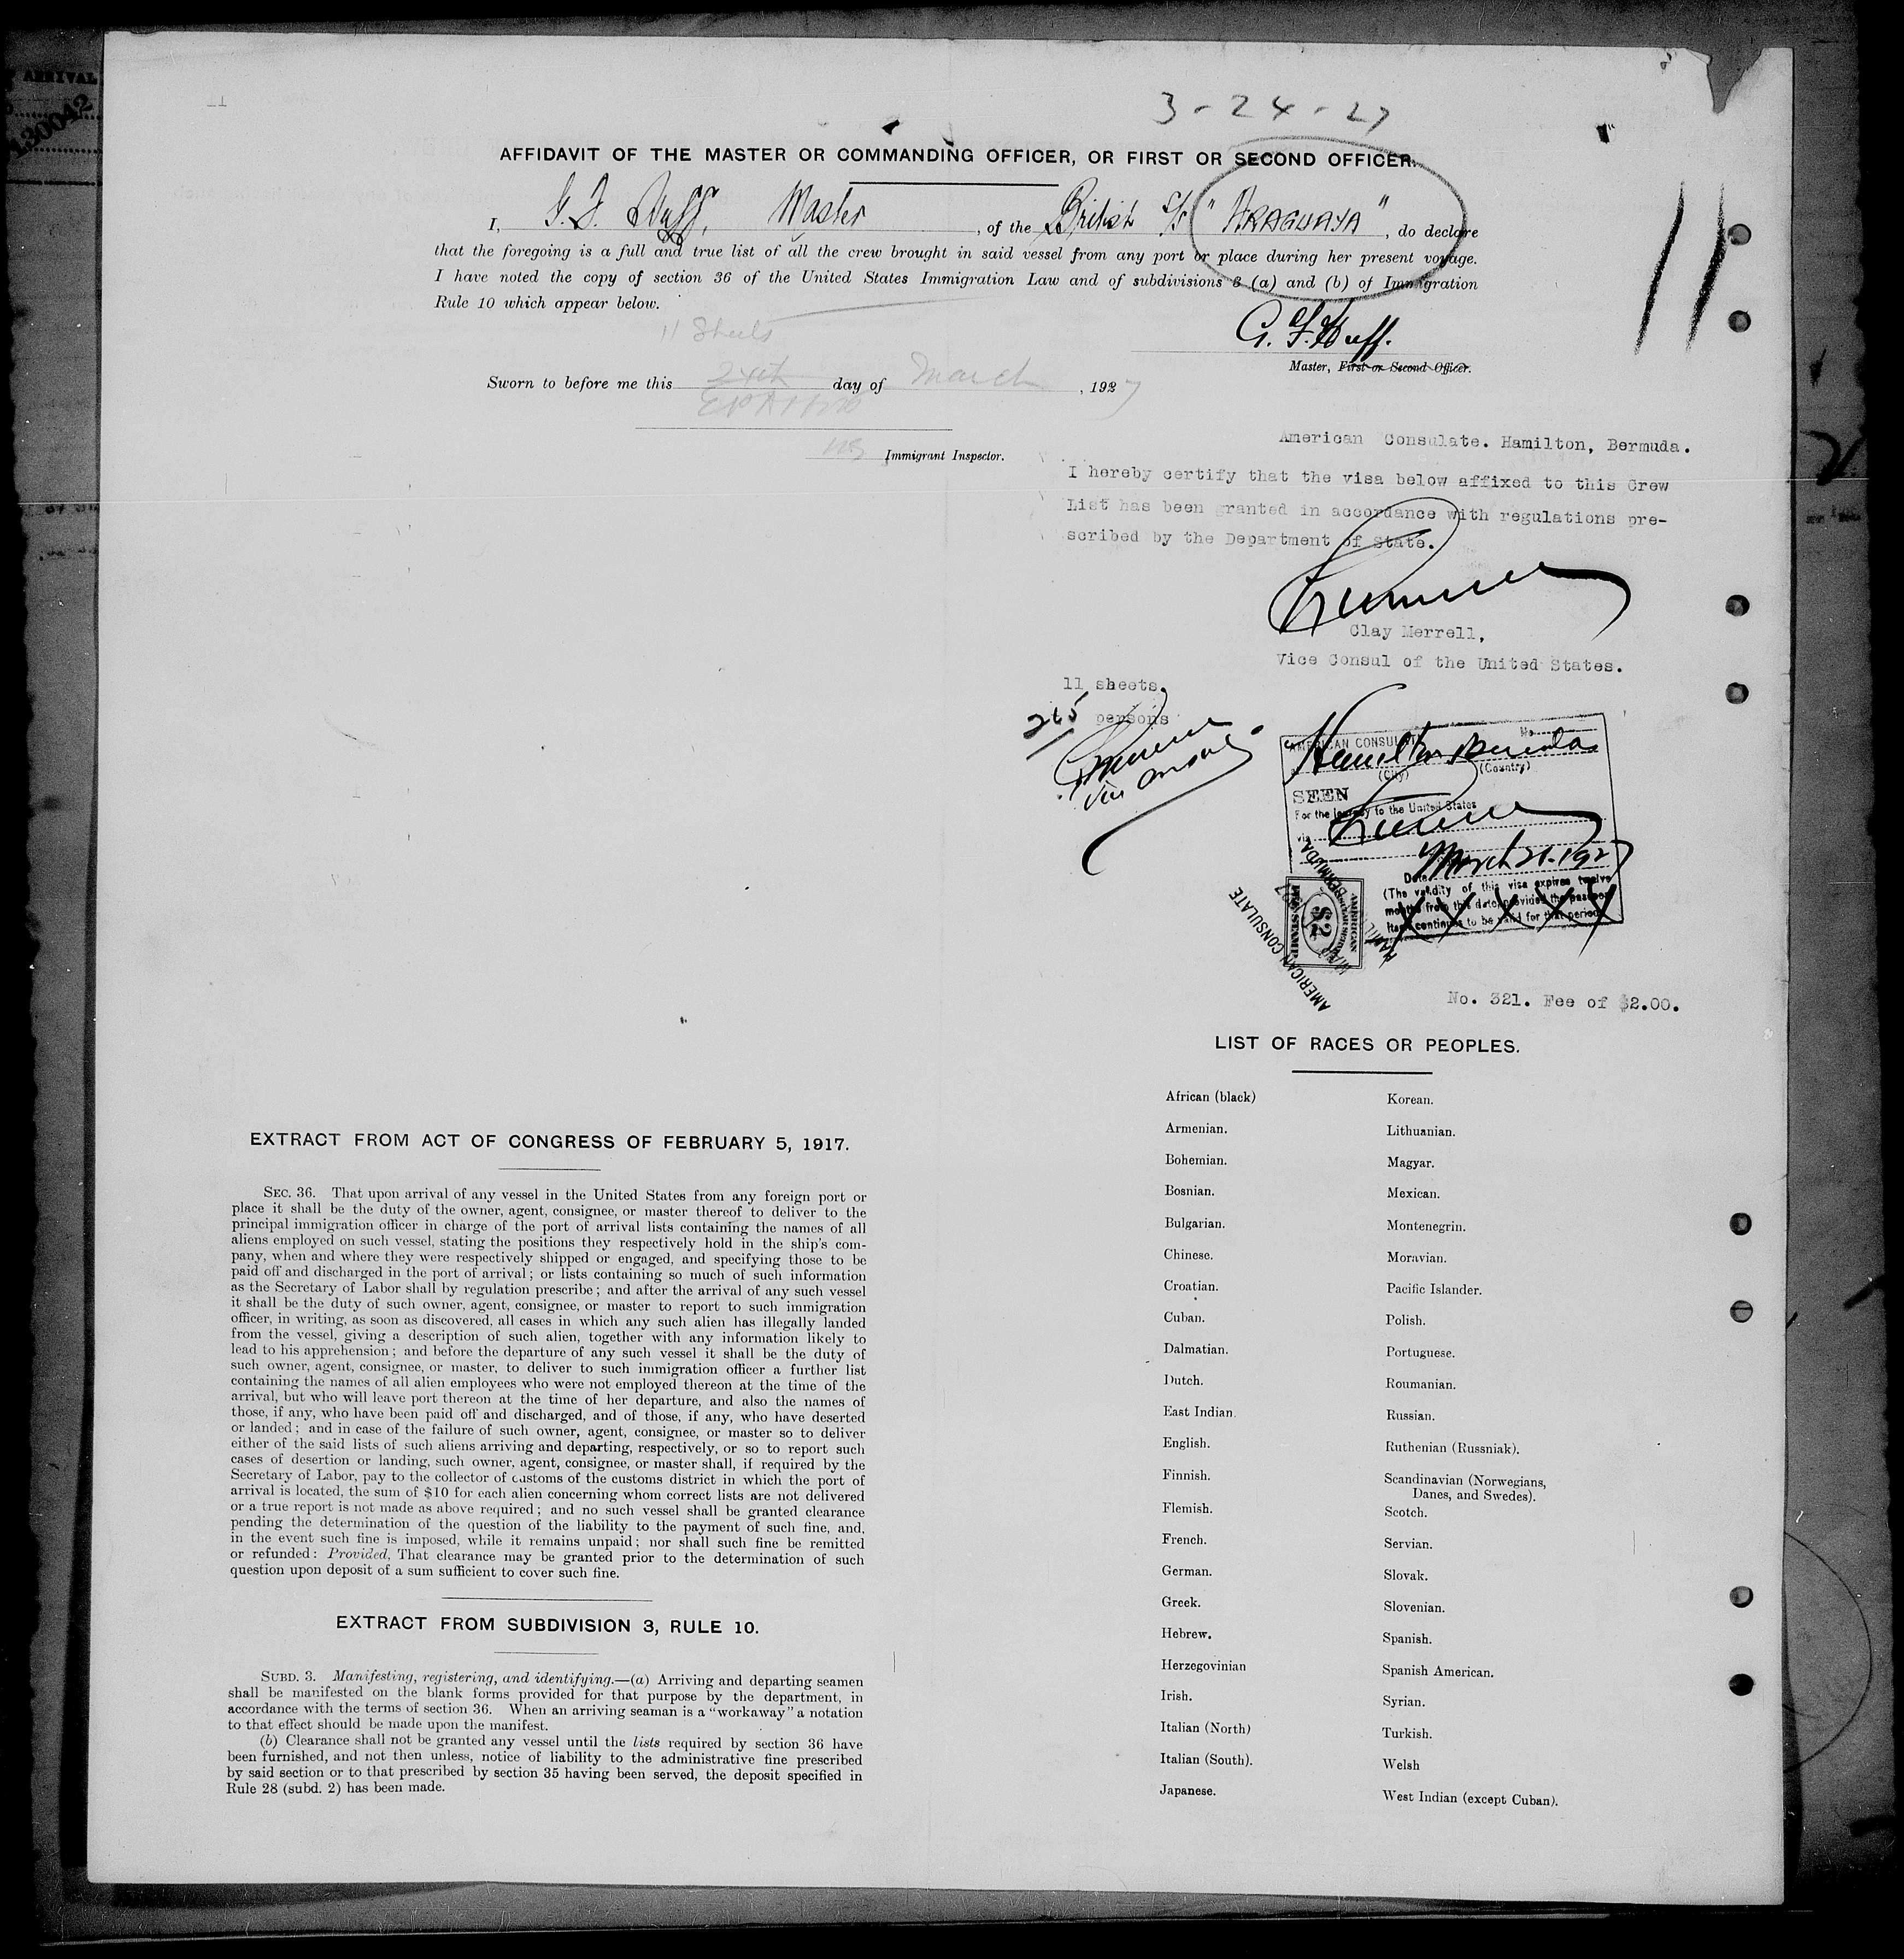 ARRIVAL
130042
3-24-27
AFFIDAVIT OF THE MASTER OR COMMANDING OFFICER, OR FIRST OR SECOND OFFICER.
I, G. F. Huff, Master, of the British S/S "ARAGUAYA", do declare
that the foregoing is a full and true list of all the crew brought in said vessel from any port or place during her present voyage.
I have noted the copy of section 36 of the United States Immigration Law and of subdivisions 3 (a) and (b) of Immigration
Rule 10 which appear below.
11
11 Sheets
G. F. Huff.
Master, First or Second Officer.
Sworn to before me this 24th day of March, 1927
Immigrant Inspector.
American Consulate. Hamilton, Bermuda.
I hereby certify that the visa below affixed to this Crew
List has been granted in accordance with regulations pre-
scribed by the Department of State.
Clay Merrell,
Vice Consul of the United States.
11 sheets.
265 persons
AMERICAN CONSULATE No.
Hamilton Bermuda
(City) (Country)
SEEN
For the journey to the United States
via
Date March 21-1927
(The validity of this visa expires twelve
months from this date, provided the passport
itself continues to be valid for that period)
AMERICAN CONSULAR SERVICE
$2
FEE STAMP
AMERICAN CONSULATE
HAMILTON, BERMUDA
No. 321. Fee of $2.00.
LIST OF RACES OR PEOPLES.
African (black)
Armenian.
Bohemian.
Bosnian.
Bulgarian.
Chinese.
Croatian.
Cuban.
Dalmatian.
Dutch.
East Indian.
English.
Finnish.
Flemish.
French.
German.
Greek.
Hebrew.
Herzegovinian
Irish.
Italian (North)
Italian (South).
Japanese.
Korean.
Lithuanian.
Magyar.
Mexican.
Montenegrin.
Moravian.
Pacific Islander.
Polish.
Portuguese.
Roumanian.
Russian.
Ruthenian (Russniak).
Scandinavian (Norwegians,
Danes, and Swedes).
Scotch.
Servian.
Slovak.
Slovenian.
Spanish.
Spanish American.
Syrian.
Turkish.
Welsh
West Indian (except Cuban).
EXTRACT FROM ACT OF CONGRESS OF FEBRUARY 5, 1917.
SEC. 36. That upon arrival of any vessel in the United States from any foreign port or
place it shall be the duty of the owner, agent, consignee, or master thereof to deliver to the
principal immigration officer in charge of the port of arrival lists containing the names of all
aliens employed on such vessel, stating the positions they respectively hold in the ship's com-
pany, when and where they were respectively shipped or engaged, and specifying those to be
paid off and discharged in the port of arrival; or lists containing so much of such information
as the Secretary of Labor shall by regulation prescribe; and after the arrival of any such vessel
it shall be the duty of such owner, agent, consignee, or master to report to such immigration
officer, in writing, as soon as discovered, all cases in which any such alien has illegally landed
from the vessel, giving a description of such alien, together with any information likely to
lead to his apprehension; and before the departure of any such vessel it shall be the duty of
such owner, agent, consignee, or master, to deliver to such immigration officer a further list
containing the names of all alien employees who were not employed thereon at the time of the
arrival, but who will leave port thereon at the time of her departure, and also the names of
those, if any, who have been paid off and discharged, and of those, if any, who have deserted
or landed; and in case of the failure of such owner, agent, consignee, or master so to deliver
either of the said lists of such aliens arriving and departing, respectively, or so to report such
cases of desertion or landing, such owner, agent, consignee, or master shall, if required by the
Secretary of Labor, pay to the collector of customs of the customs district in which the port of
arrival is located, the sum of $10 for each alien concerning whom correct lists are not delivered
or a true report is not made as above required; and no such vessel shall be granted clearance
pending the determination of the question of the liability to the payment of such fine, and,
in the event such fine is imposed, while it remains unpaid; nor shall such fine be remitted
or refunded: Provided, That clearance may be granted prior to the determination of such
question upon deposit of a sum sufficient to cover such fine.
EXTRACT FROM SUBDIVISION 3, RULE 10.
SUBD. 3. Manifesting, registering, and identifying.—(a) Arriving and departing seamen
shall be manifested on the blank forms provided for that purpose by the department, in
accordance with the terms of section 36. When an arriving seaman is a "workaway" a notation
to that effect should be made upon the manifest.
(b) Clearance shall not be granted any vessel until the lists required by section 36 have
been furnished, and not then unless, notice of liability to the administrative fine prescribed
by said section or to that prescribed by section 35 having been served, the deposit specified in
Rule 28 (subd. 2) has been made.